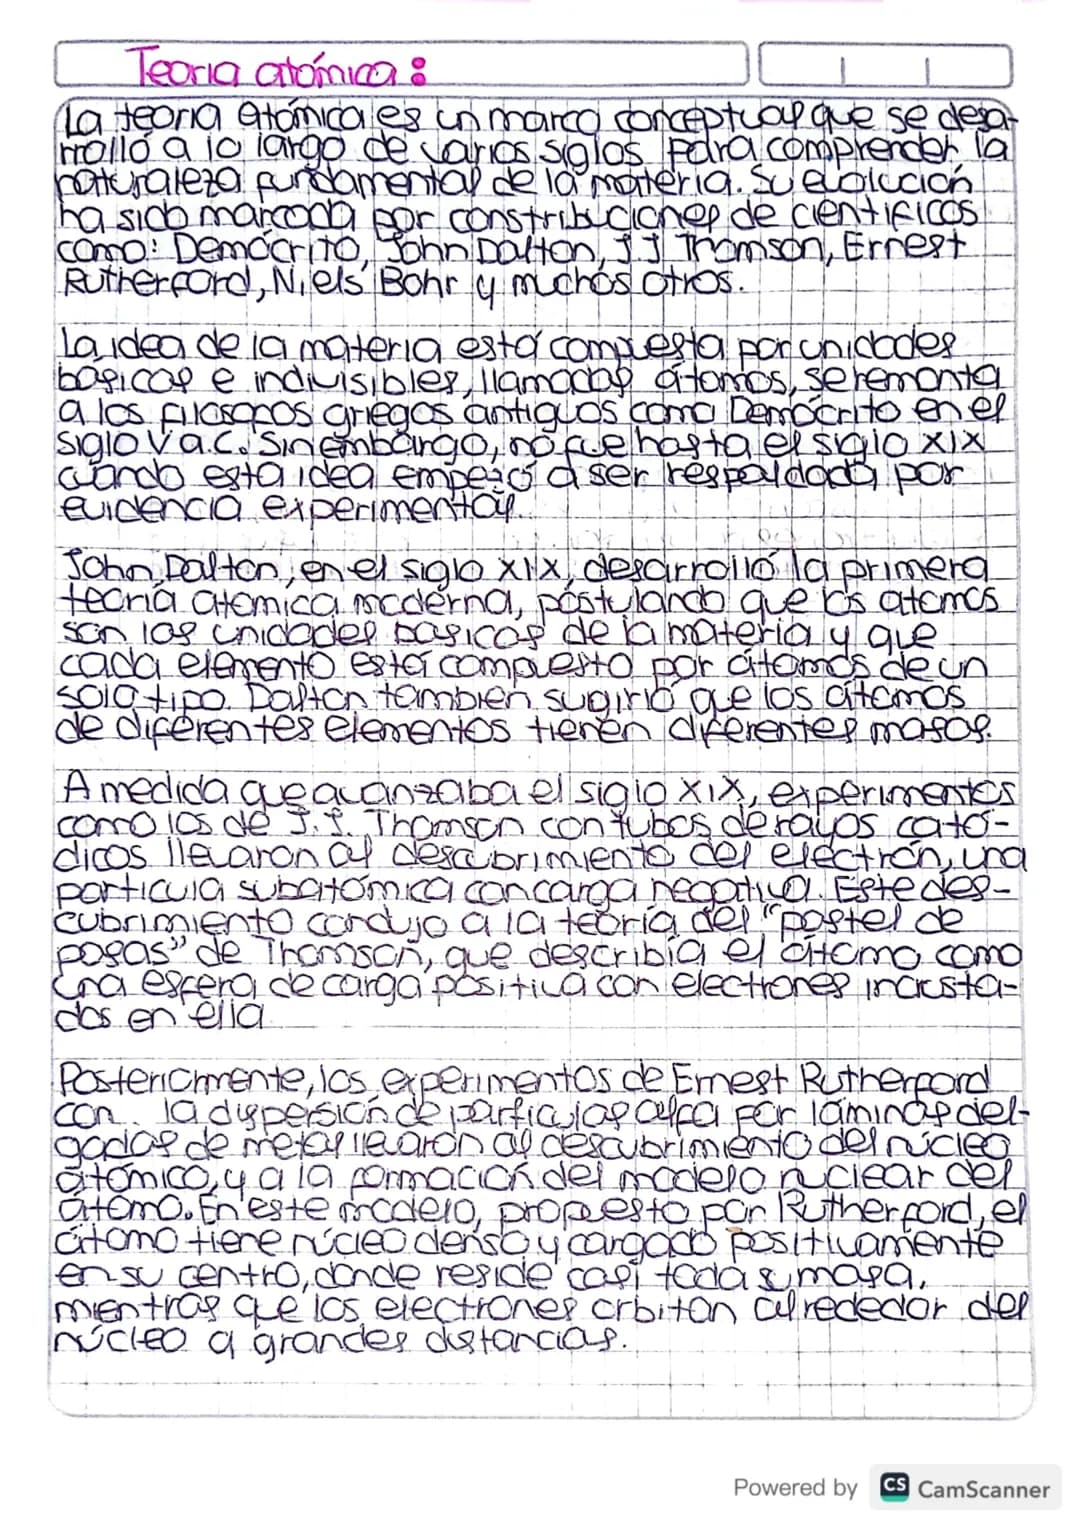 Teoria atómica:
La teoria atómica es un marco conceptual que se desa-
rrolló a lo largo de varios siglos para comprender la
naturaleza fundamental de la materia. Su evolución
ha sido marcada por constribuciones de cientificos
como: Demócrito, John Dalton, J J Thomson, Ernest
Rutherford, Niels Bohr y muchos otros.
La idea de la materia está compuesta por unidades
básicas e indivisibles, llamadas átomos, se remonta
a los filosofos griegos antiguos como Demócrito en el
siglo V a.C. Sin embargo, no fue hasta el siglo XIX
cuando esta idea empezó a ser respaldada por
evidencia experimental.
John Dalton, en el siglo XIX, desarrolló la primera
teoría atomica moderna, postulando que los atomos
son las unidades basicas de la materia y que
cada elemento está compuesto por átomos de un
solo tipo. Dalton tambien sugirió que los átomos
de diferentes elementos tienen diferentes masas.
A medida que avanzaba el siglo XIX, experimentos
como los de J.J. Thomson con tubos de rayos cató-
dicos llevaron al descubrimiento del electrón, una
particula subatómica con carga negativa. Este des-
cubrimiento condujo a la teoría del "pastel de
pasas" de Thomson, que describía el átomo como
una esfera de carga positiva con electrones incrusta-
dos en ella
Posteriormente, los experimentos de Ernest Rutherford
con la dispersión de particulas alfa por láminas del-
gadas de metal llevaron al descubrimiento del núcleo
atómico, y a la formación del modelo nuclear del
átomo. En este modelo, propuesto por Rutherford, el
átomo tiene núcleo denso y cargado positivamente
en su centro, donde reside casi toda su masa,
mientras que los electrones orbitan alrededor del
núcleo a grandes distancias.
Powered by CS CamScanner